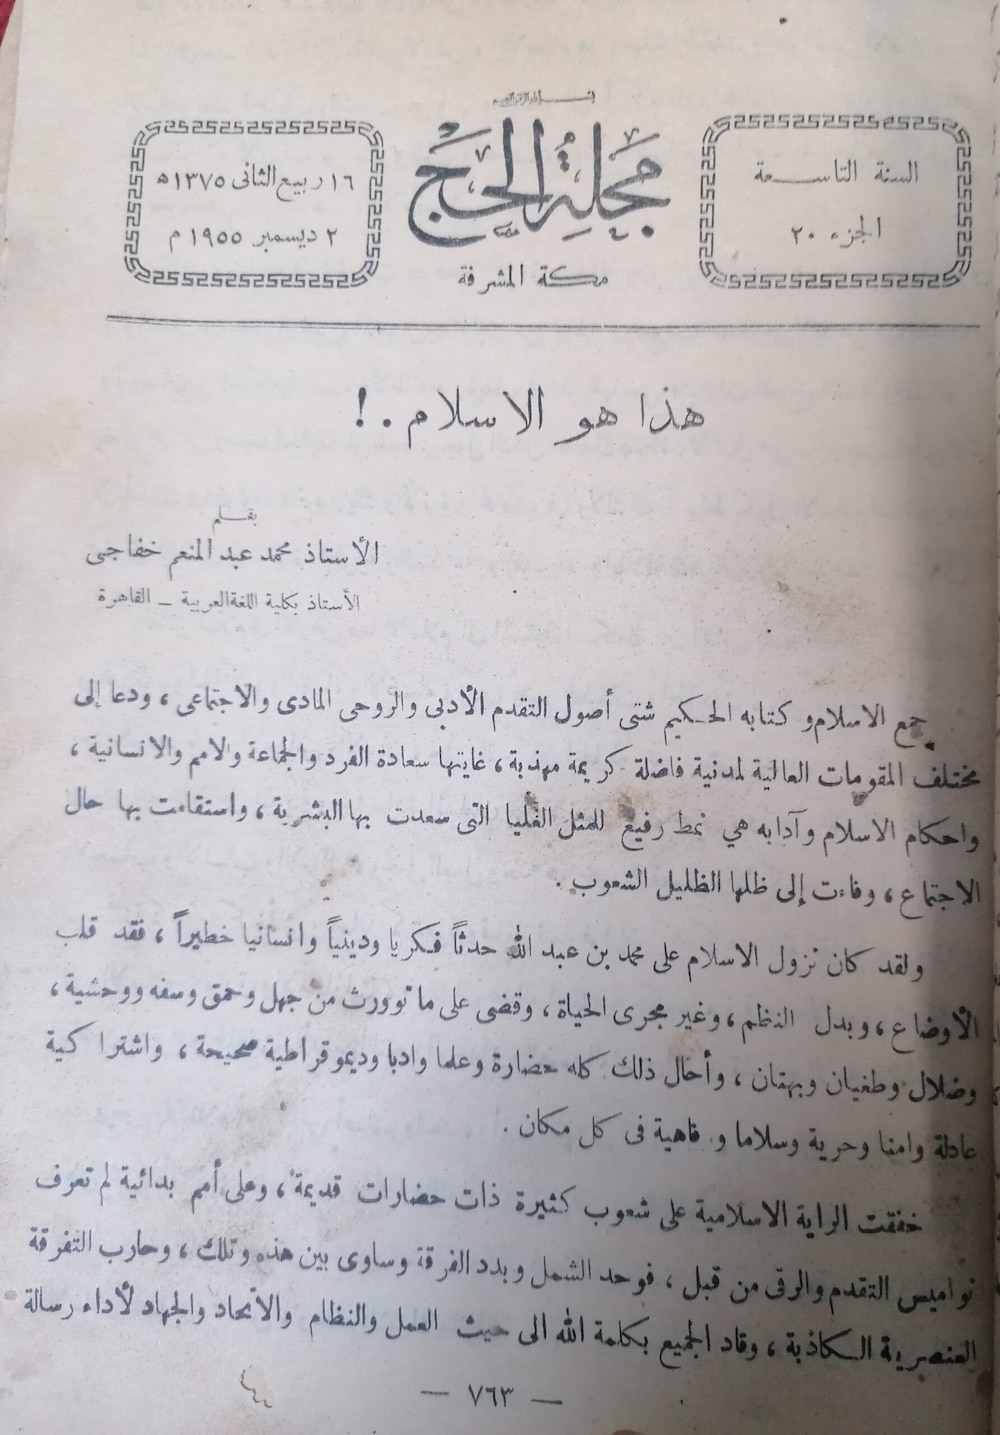 السنة التاسعة
الجزء ٢٠
مجلة الحج
مكة المشرفة
١٦ ربيع الثانى ١٣٧٥ه
٢ ديسمبر ١٩٥٥ م
هذا هو الاسلام .!
بقلم
الأستاذ محمد عبد المنعم خفاجى
الأستاذ بكلية اللغة العربية - القاهرة
جمع الاسلام و كتابه الحكيم شتى أصول التقدم الأدبى والروحى المادى والاجتماعى ، ودعا إلى
مختلف المقومات العالية لمدنية فاضلة كريمة مهذبة ، غايتها سعادة الفرد والجماعة والامم والانسانية ،
واحكام الاسلام وآدابه هي نمط رفيع للمثل العليا التى سعدت بها البشرية ، واستقامت بها حال
الاجتماع ، وفاءت إلى ظلها الظليل الشعوب .
ولقد كان نزول الاسلام على محمد بن عبد الله حدثاً فكريا ودينياً وانسانيا خطيراً ، فقد قلب
الأوضاع ، وبدل النظم ، وغير مجرى الحياة ، وقضى على ما توورث من جهل وحمق وسفه ووحشية ،
وضلال وطغيان وبهتان ، وأحال ذلك كله حضارة وعلما وادبا وديموقراطية صحيحة ، واشتراكية
عادلة وامنا وحرية وسلاما و فاهية فى كل مكان .
خفقت الراية الاسلامية على شعوب كثيرة ذات حضارات قديمة ، وعلى أمم بدائية لم تعرف
نواميس التقدم والرقى من قبل ، فوحد الشمل وبدد الفرقة وساوى بين هذه وتلك ، وحارب التفرقة
العنصرية الكاذبة ، وقاد الجميع بكلمة الله الى حيث العمل والنظام والاتحاد والجهاد لأداء رسالة
— ٧٦٣ —